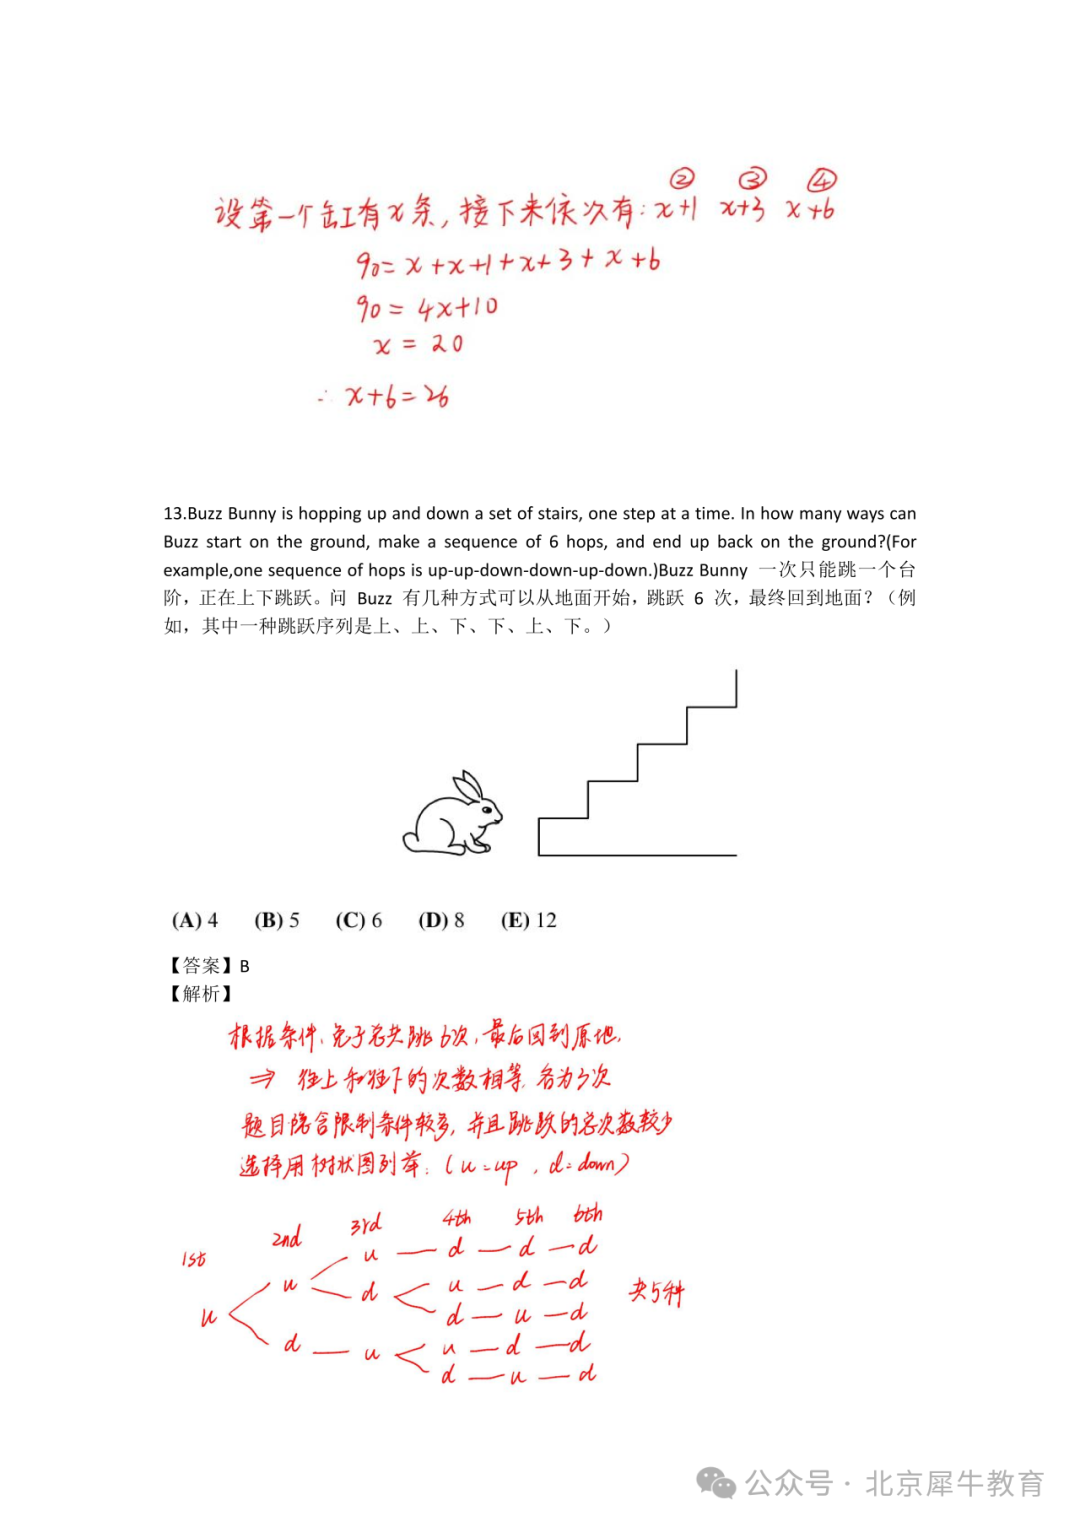 ② ③ ④
设第一个缸有x条，接下来依次有：x+1 x+3 x+6
90=x+x+1+x+3+x+6
90=4x+10
x=20
∴ x+6=26
13.Buzz Bunny is hopping up and down a set of stairs, one step at a time. In how many ways can
Buzz start on the ground, make a sequence of 6 hops, and end up back on the ground?(For
example,one sequence of hops is up-up-down-down-up-down.)Buzz Bunny 一次只能跳一个台
阶，正在上下跳跃。问 Buzz 有几种方式可以从地面开始，跳跃 6 次，最终回到地面？（例
如，其中一种跳跃序列是上、上、下、下、上、下。）
(A) 4 (B) 5 (C) 6 (D) 8 (E) 12
【答案】B
【解析】
根据条件，兔子总共跳6次，最后回到原地，
⇒ 往上和往下的次数相等，各为3次
题目隐含限制条件较多，并且跳跃的总次数较少
选择用树状图列举：(u=up, d=down)
1st 2nd 3rd 4th 5th 6th
u — d — d — d
u d u — d — d 共5种
u d — u — d
d — u u — d — d
d — u — d
公众号 · 北京犀牛教育